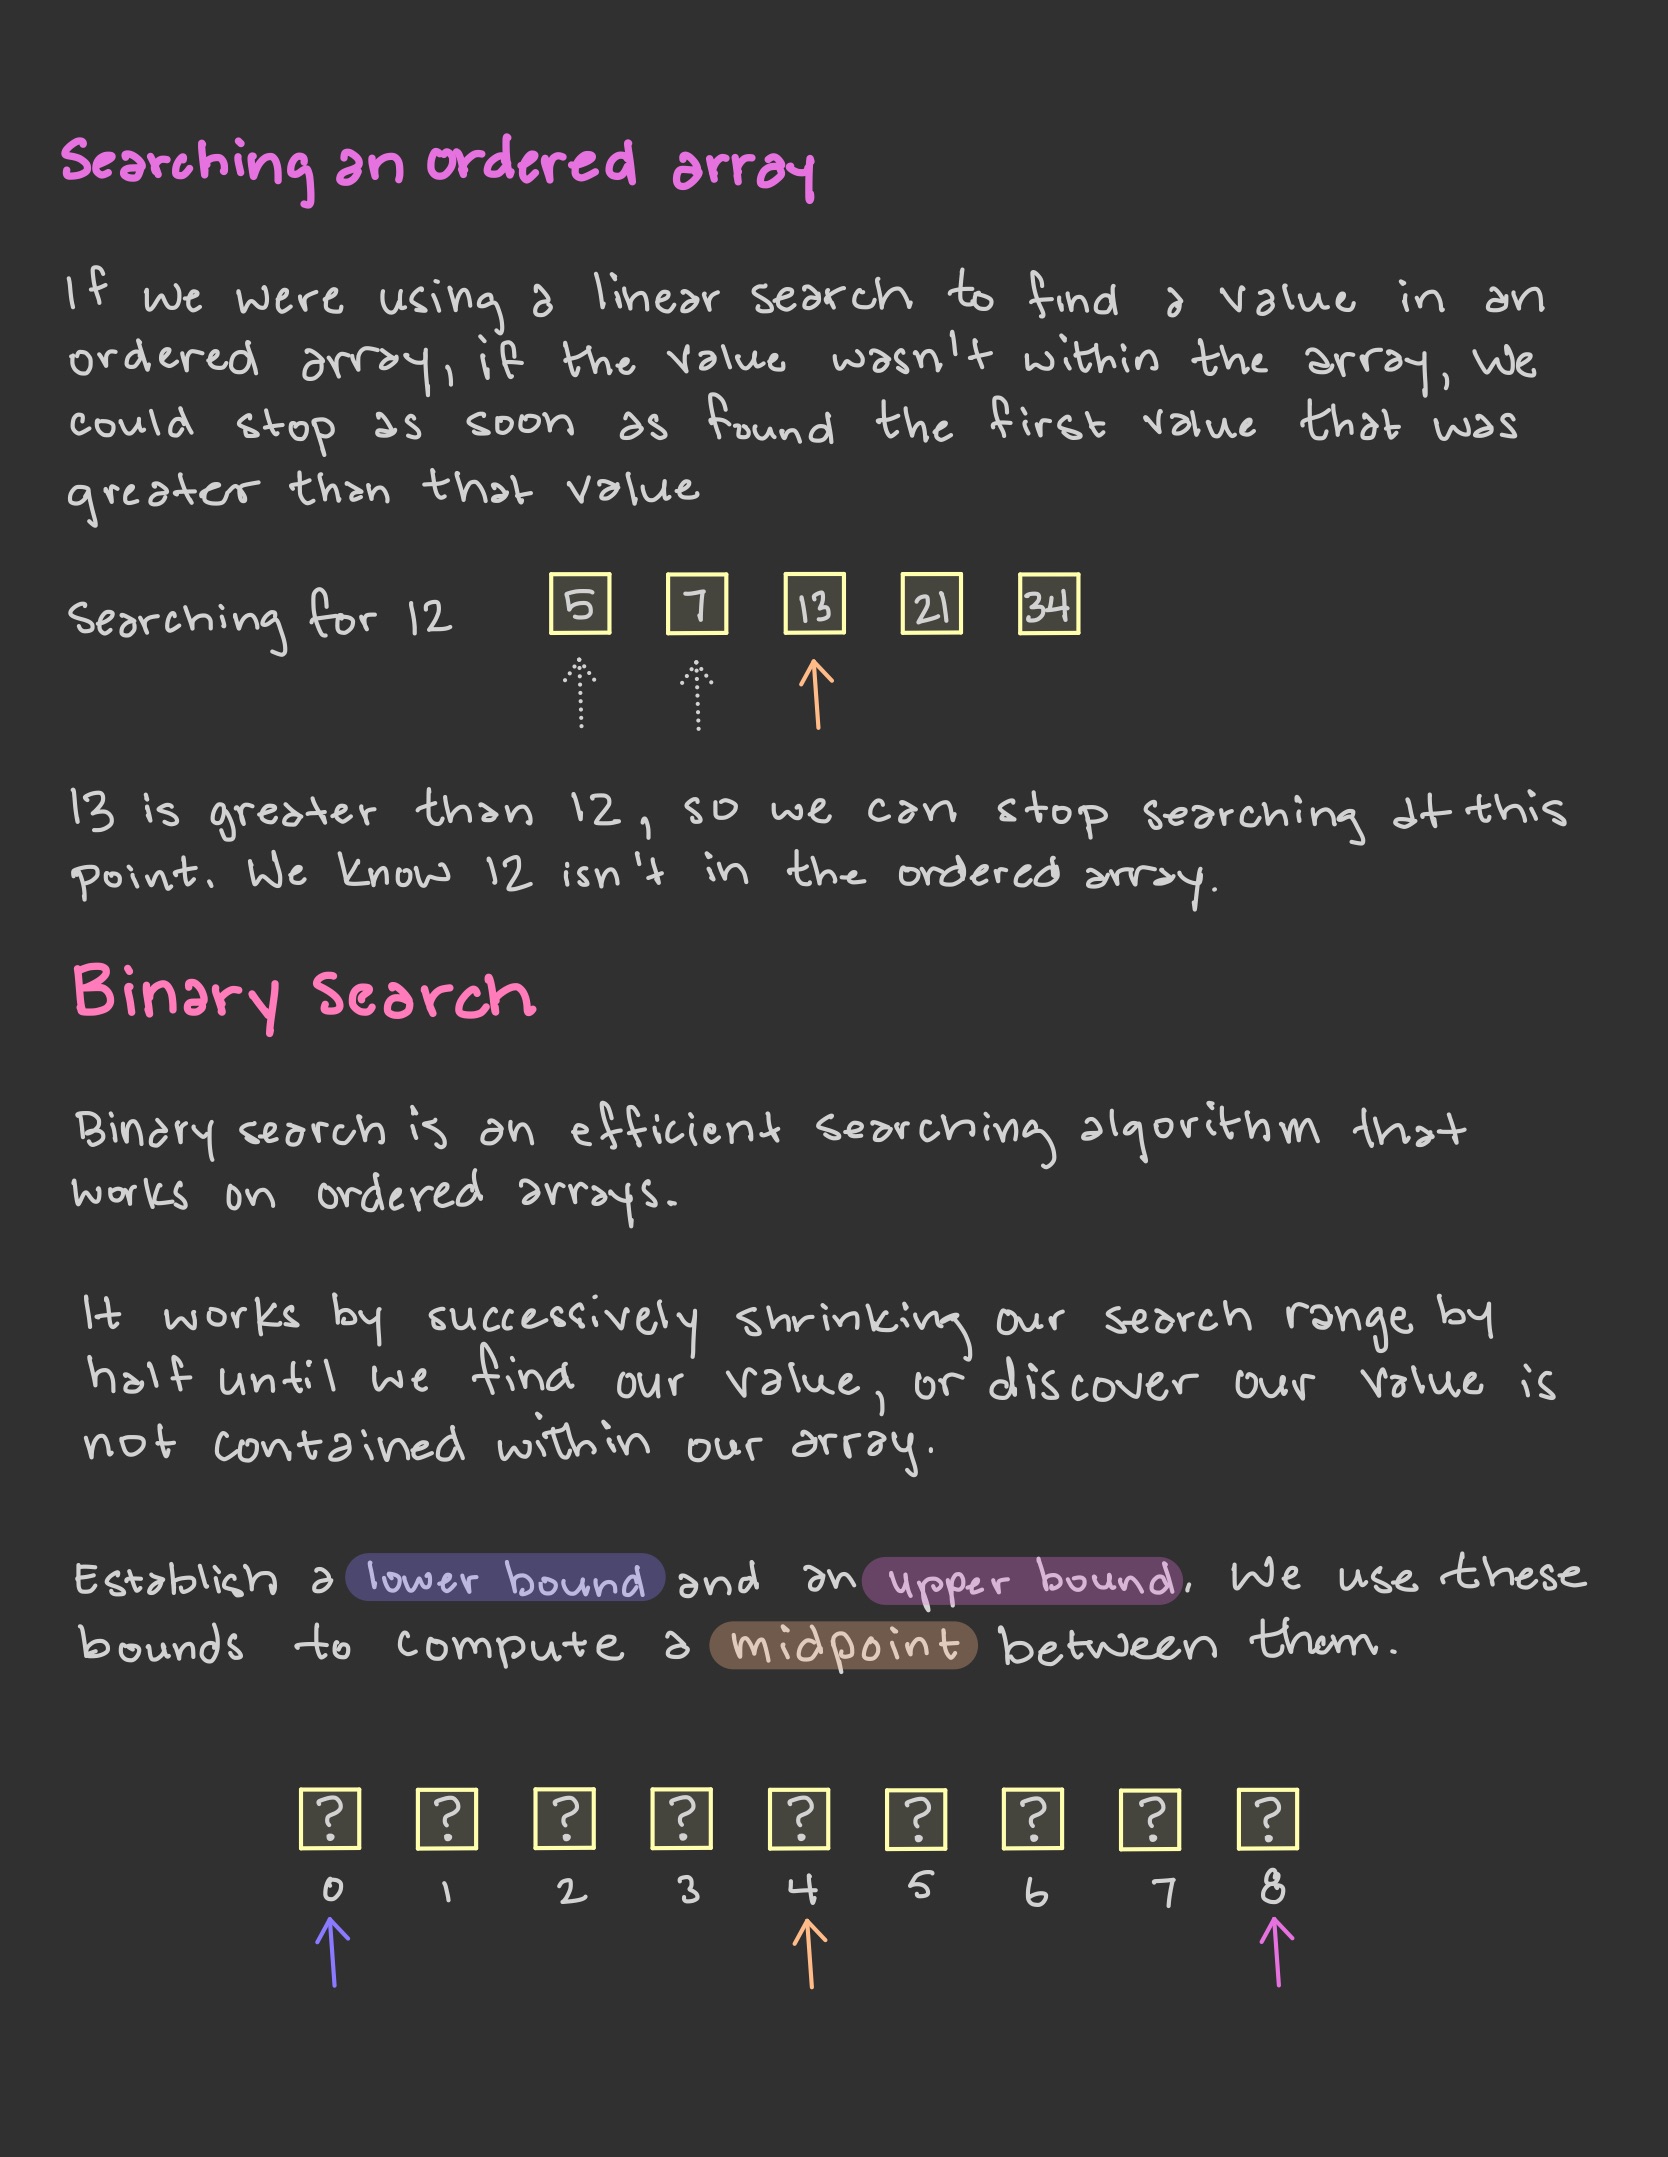 Searching an ordered array
If we were using a linear search to find a value in an
ordered array, if the value wasn't within the array, we
could stop as soon as found the first value that was
greater than that value
Searching for 12 5 7 13 21 34
13 is greater than 12, so we can stop searching at this
point. We know 12 isn't in the ordered array.
Binary Search
Binary search is an efficient searching algorithm that
works on ordered arrays.
It works by successively shrinking our search range by
half until we find our value, or discover our value is
not contained within our array.
Establish a lower bound and an upper bound. We use these
bounds to compute a midpoint between them.
? ? ? ? ? ? ? ? ?
0 1 2 3 4 5 6 7 8